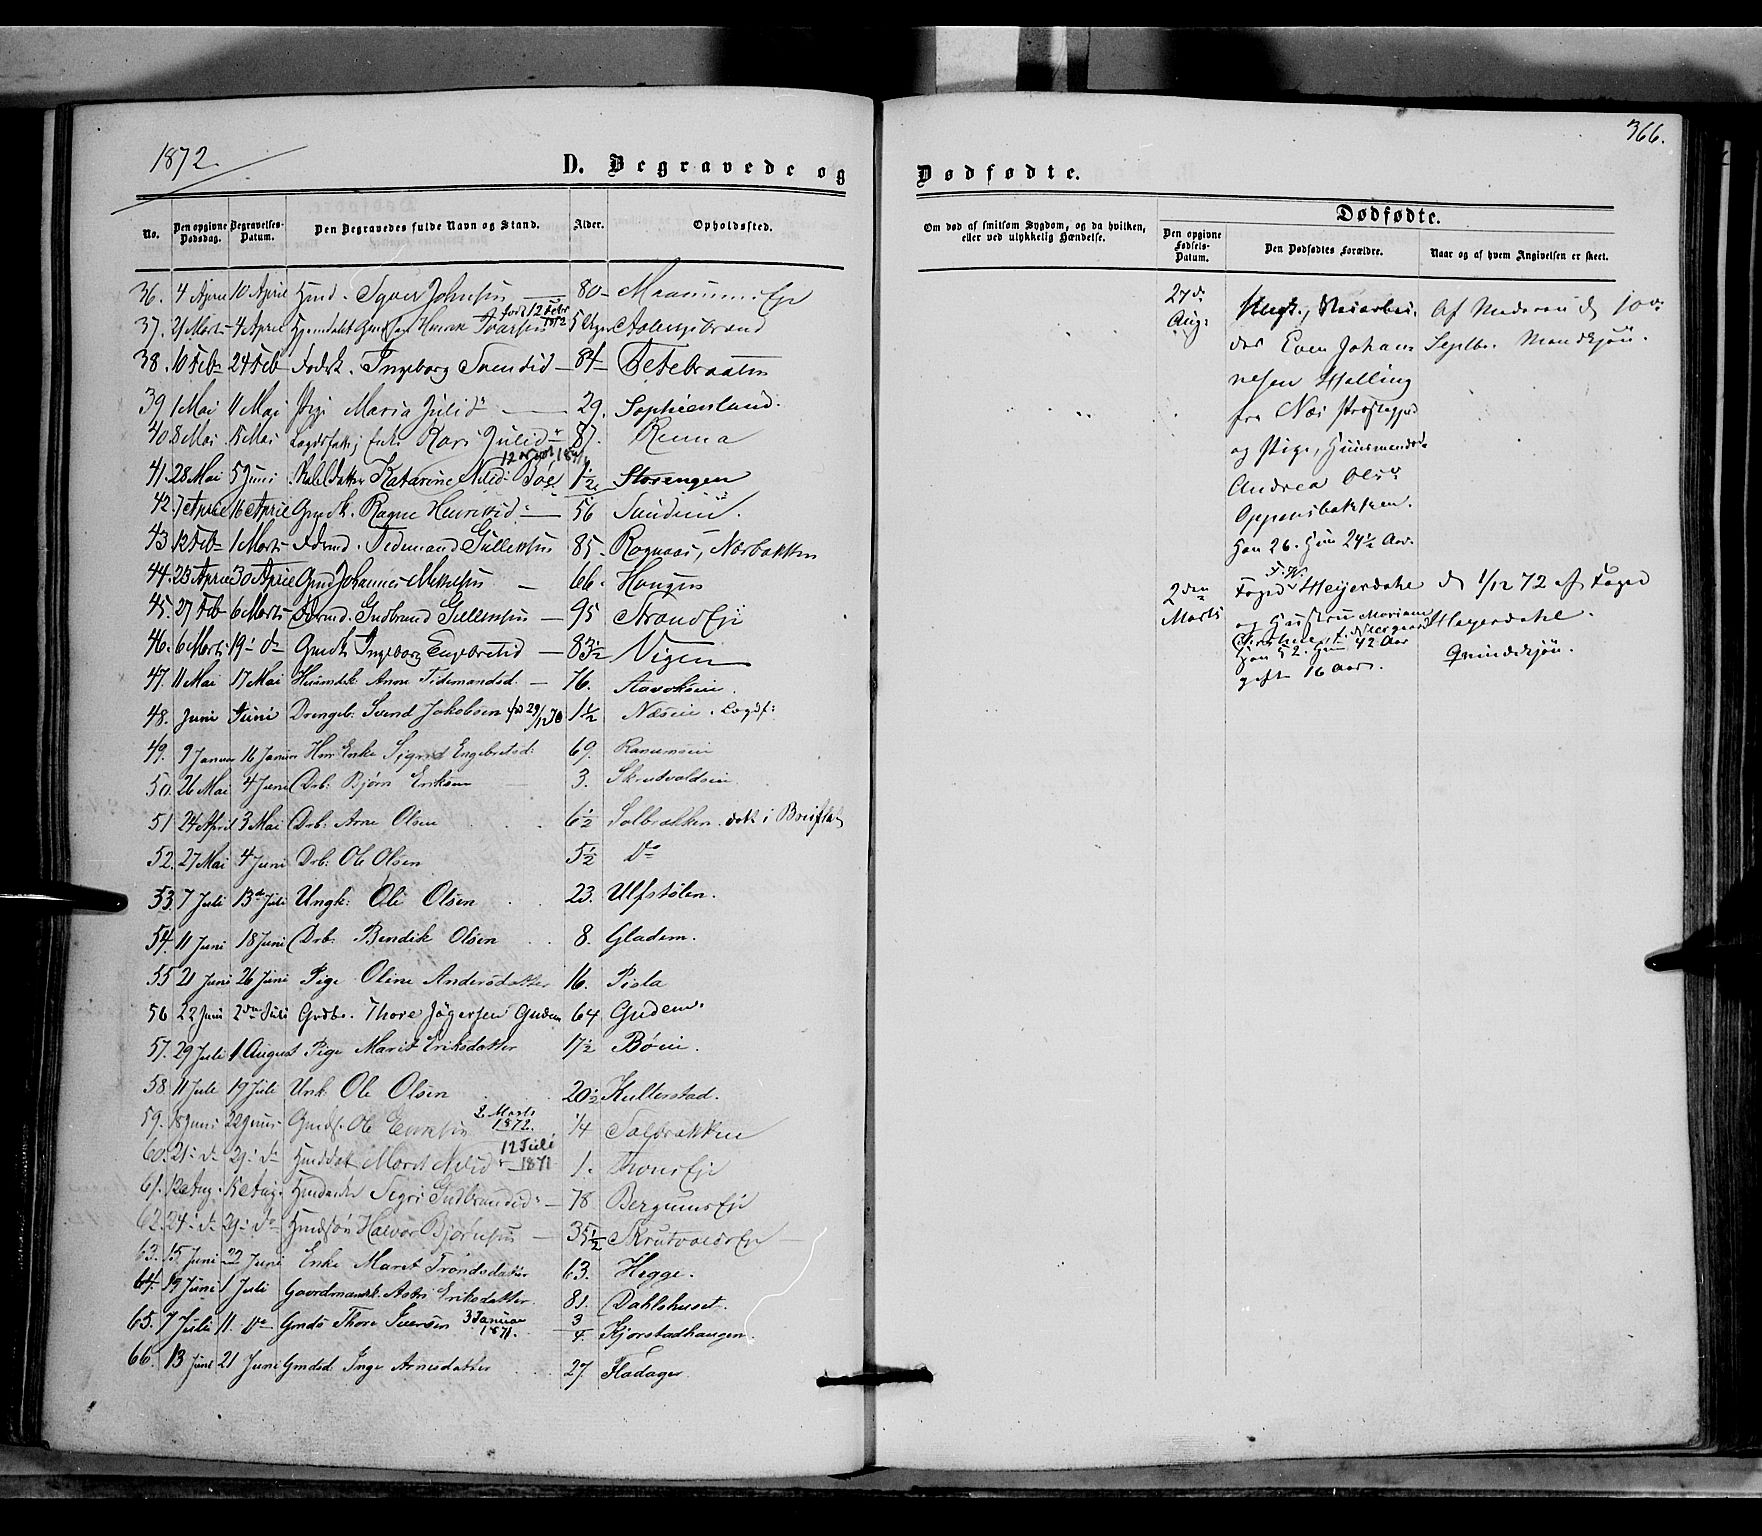 1872.
366.
D. Begravede og
Dødfødte.
No.
Den opgivne Dødsdag.
Begravelses-Datum.
Den Begravedes fulde Navn og Stand.
Alder.
Opholdssted.
Om død af smitsom Sygdom, og da hvilken, eller ved ulykkelig Hændelse.
Dødfødte.
Den opgivne Fødsels-Datum.
Den Dødfødtes Forældre.
Naar og af hvem Angivelsen er skeet.
36. 4 April 10 April Johnsen 80
37. 21 Marts 4 April Henrik Ivarsen født 12 Febr 1872 5 Uger
38. 10 Feb 24 Feb Fodsk. Ingeborg 84 Tetebraaten
39 1 Mai 11 Mai Pige Maria Julid 29. Sophienlund.
40 8 Mai 15 Mai Enke Kari Julid 87. Renna
41. 28 Mai 5 Juni Katarine Nilsd. Bøe 1½ Storengen
42. 7 April 16 April Gmdk. Ragne Henriksd 56
43. 12 Feb 1 Marts Tidemand Gulleksen 85 Rognaas, Nærbakken
44. 23 April 30 April Gmd Johannes Mikkelsen 66. Haugen
45. 27 Feb 6 Marts Gudbrand Gulleksen 95 Strand Eje
46. 6 Marts 19 do Gmdk Ingeborg Engebretsd 83½ Vigen
47. 11 Mai 17 Mai Huusmdk. Anne Tidemandsd. 76.
48. Juni Juni Drengeb. Svend Jakobsen fød 29/12 70 1½ Næseie. Lægdf:
49. 9 Januar 16 Januar Hm: Enke Sigrid Engebretsd: 69. Ranumseie
50. 26 Mai 4 Juni Drb: Bjørn Eriksen 3. Skrutvoldseie
51 24 April 3 Mai Drb: Arne Olsen 6½ Solbrækken. død i Breiflat
52. 27 Mai 4 Juni Drb: Ole Olsen 5½ Do
53. 7 Juli 13de Juli Ungk: Ole Olsen 23. Ulfstølen.
54. 11 Juni 18 Juni Drb. Bendik Olsen 8. Gladem.
55 21 Juni 26 Juni Pige Oline Andersdatter 16. Piola
56 22 Juni 2den Juli Grdbr. Thore Jøgersen Gudem 64 Gudem.
57. 29 Juli 1 August Pige Marit Eriksdatter 17½ Bøeie.
58. 11 Juli 19 Juli Unk Ole Olsen 20½ Kullerstad.
59. 18 Juni 22 Juni Gmds. Ole 2 Marts 1872. ¼ Solbrækken
60. 21 do 29 do Marit Nilsd 12 Juli 1871 1.
61. 12 Aug. 15 Aug. Sigri Gudbrandsd 78 Bergums Eje
62. 24 do 29 do Halvor Bjørnsen 35½ Skrutvolds Eje
63. 15 Juni 22 Juni Enke Marit Trondsdatter 63. Hegge.
64. 19 Juni 1 Juli Gaardmandsk. Astri Eriksdatter. 81. Dahlshuset.
65. 7 Juli 11. Do Gmds Thore Iversen 3 Januar 1871. ¾. Kjørstadhaugen.
66. 13 Juni 21 Juni Gmdsd. Inge Arnesdatter 27. Fladager.
27de Aug:
Ungk., Veiarbei-
der Even Johan-
nesen Halling
fra Næs Præstegjed
og Pige, Huusmandsd.
Andrea Olsd
Oppensbakken.
Han 26. Hun 24½ Aar.
Af Moderen d. 10de
Septbr. Mandkjøn.
2den Marts
Foged F. W. Heyerdahl
og Hustru Mariane
Han 52. Hun 42 Aar
gift 16 Aar.
d 1/12 72 af Foged
Heyerdahl.
Qvindekjøn.